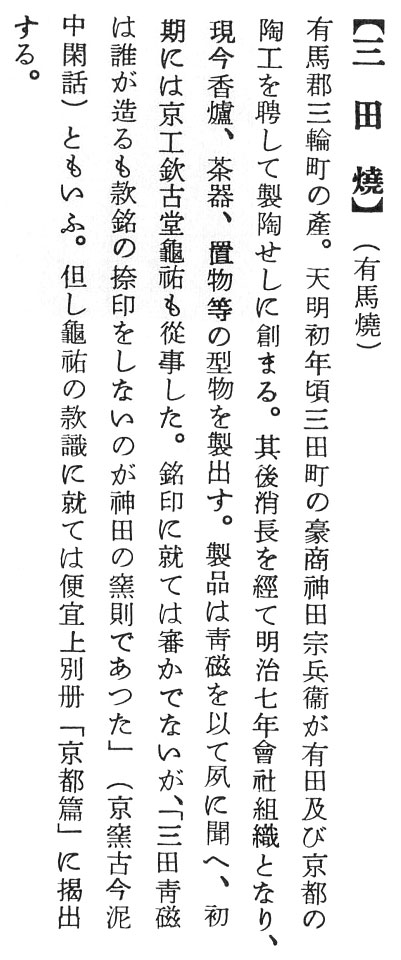 【三田燒】（有馬燒）
有馬郡三輪町の產。天明初年頃三田町の豪商神田宗兵衞が有田及び京都の
陶工を聘して製陶せしに創まる。其後消長を經て明治七年會社組織となり、
現今香爐、茶器、置物等の型物を製出す。製品は靑磁を以て夙に聞へ、初
期には京工欽古堂龜祐も從事した。銘印に就ては審かでないが、「三田靑磁
は誰が造るも款銘の捺印をしないのが神田の窯則であつた」（京窯古今泥
中閑話）ともいふ。但し龜祐の款識に就ては便宜上別册「京都篇」に揭出
する。